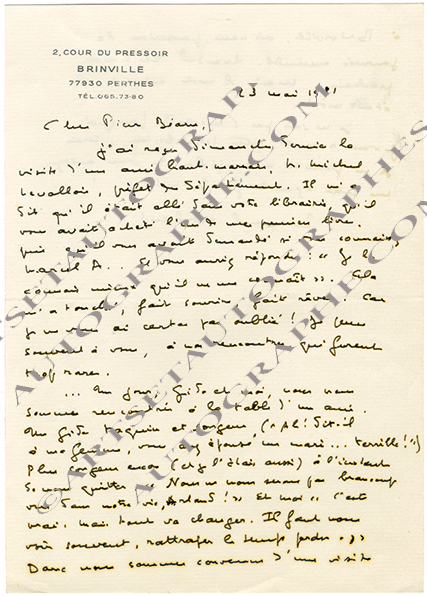 2, COUR DU PRESSOIR
BRINVILLE
77930 PERTHES
TÉL. 065.73-80
23 mai 1981
Cher Pierre Béarn,
j'ai reçu Dimanche Dernier la
visite d'un ami haut-marnais, M. Michel
Levallois, préfet du Département. Il m'a
dit qu'il était allé dans votre librairie, qu'il
vous avait acheté l'un de mes premiers livres,
puis qu'il vous avait demandé si vous connaissiez
Marcel A... Et vous auriez répondu : « Je le
connais mieux qu'il ne me connaît ». Cela
m'a touché, fait sourire, fait rêver. Car
je ne vous ai certes pas oublié ! Je pense
souvent à vous, à nos rencontres qui furent
trop rares.
... Un jour, Gide et moi, nous nous
sommes rencontrés à la table d'un ami.
Un Gide taquin et songeur (« Ah ! dit-il
à ma femme, vous avez épousé un mari... terrible ! »)
Plus songeur encore (et je l'étais aussi) à l'instant
de nous quitter « Nous ne nous serons pas beaucoup
vus dans notre vie, Arland ! » Et moi « C'est
vrai, mais tout va changer. Il faut nous
voir souvent, rattraper le temps perdu... »
Donc nous sommes convenus d'une visite
©ARTSETAUTOGRAPHES